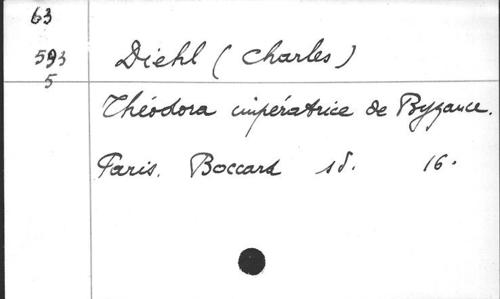 63
593
5
Diehl (Charles)
Théodora impératrice de Byzance.
Paris. Boccard sd. 16.